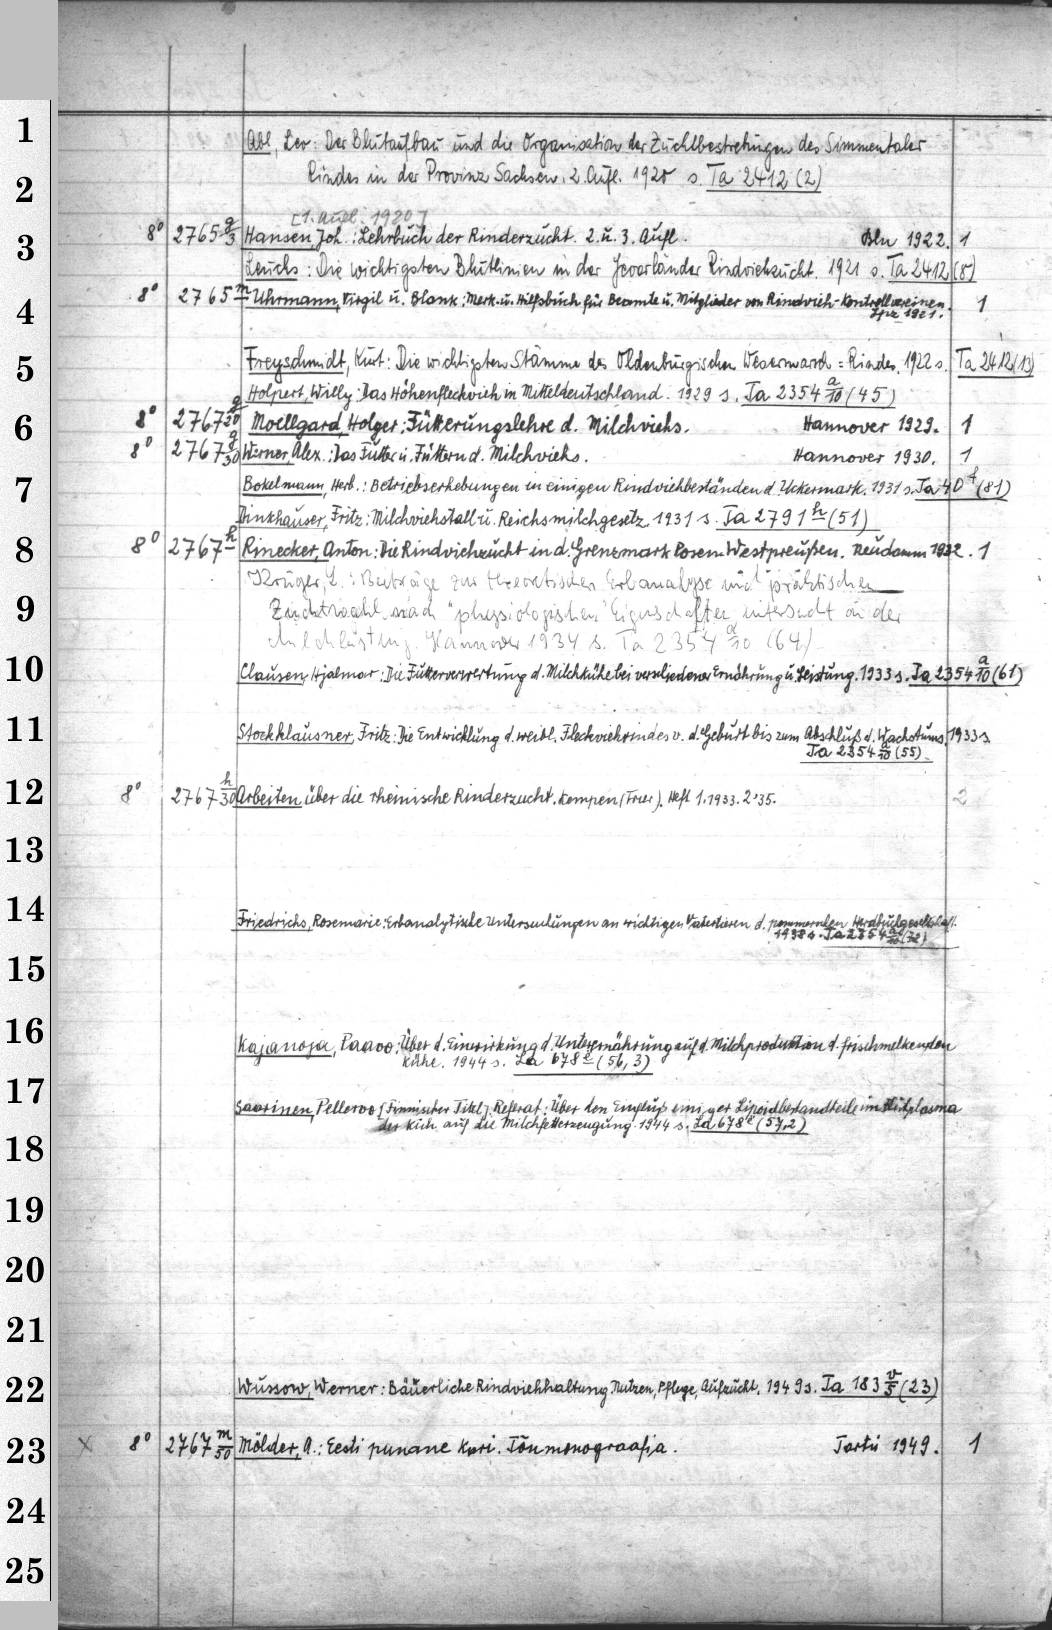 1
Abl, Leo: Der Blutaufbau und die Organisation der Zuchtbestrebungen des Simmentaler
2
Rindes in der Provinz Sachsen. 2. Aufl. 1925 s. Ta 2412 (2)
[1. Aufl. 1920]
3
8° 2765 g/3 Hansen, Joh.: Lehrbuch der Rinderzucht. 2. u. 3. Aufl. Bln 1922. 1
Leuchs: Die wichtigsten Blutlinien in der Jeverländer Rindviehzucht. 1921 s. Ta 2412 (8)
4
8° 2765 m Uhrmann, Virgil u. Blank: Merk- u. Hilfsbuch für Beamte u. Mitglieder von Rindvieh-Kontrollvereinen. 1
Lpz 1921.
5
Freyschmidt, Kurt: Die wichtigsten Stämme des Oldenburgischen Wesermarsch=Rindes. 1922 s. Ta 2412 (13)
Holpert, Willy: Das Höhenfleckvieh in Mitteldeutschland. 1929 s. Ta 2354 a/10 (45)
6
8° 2767 g/20 Moellgard, Holger: Fütterungslehre d. Milchviehs. Hannover 1929. 1
8° 2767 g/30 Werner, Alex.: Das Futter u. Füttern d. Milchviehs. Hannover 1930. 1
7
Bokelmann, Herb.: Betriebserhebungen in einigen Rindviehbeständen d. Uckermark. 1931 s. Ta 40 f (81)
Dinkhauser, Fritz: Milchviehstall u. Reichsmilchgesetz 1931 s. Ta 2791 h (51)
8
8° 2767 h Rinecker, Anton: Die Rindviehzucht in d. Grenzmark Posen-Westpreußen. Neudamm 1932. 1
Krüger, L.: Beiträge zur theoretischen Erbanalyse und praktischen
9
Zuchtwahl nach "physiologischen" Eigenschaften, untersucht an der
Milchleistung. Hannover 1934 s. Ta 2354 a/10 (64)
10
Clausen, Hjalmar: Die Futterverwertung d. Milchkühe bei verschiedener Ernährung u. Leistung. 1933 s. Ta 2354 a/10 (61)
11
Stockklausner, Fritz: Die Entwicklung d. weibl. Fleckviehrindes v. d. Geburt bis zum Abschluß d. Wachstums. 1933 s.
Ta 2354 a/10 (55)
12
8° 2767 h/30 Arbeiten über die rheinische Rinderzucht. Kempen (Trier). Heft 1.1933. 2.'35. 2
13
14
Friedrichs, Rosemarie: Erbanalytische Untersuchungen an wichtigen Vatertieren d. pommerschen Herdbuchgesellschaft.
1938 s. Ta 2354 a/10 (72)
15
16
Kajanoja, Paavo: Über d. Einwirkung d. Unterernährung auf d. Milchproduktion d. frischmelkenden
Kühe. 1944 s. La 678 e (56, 3)
17
Saarinen, Pellervo [Finnischer Titel]. Referat: Über den Einfluß einiger Lipoidbestandteile im Blutplasma
der Kuh auf die Milchfetterzeugung. 1944 s. La 678 e (57, 2)
18
19
20
21
22
Wussow, Werner: Bäuerliche Rindviehhaltung, Nutzen, Pflege, Aufzucht. 1949 s. Ta 183 v/5 (23)
23
x 8° 2767 m/50 Mölder, A.: Eesti punane kari. Tõumonograafia. Tartu 1949. 1
24
25